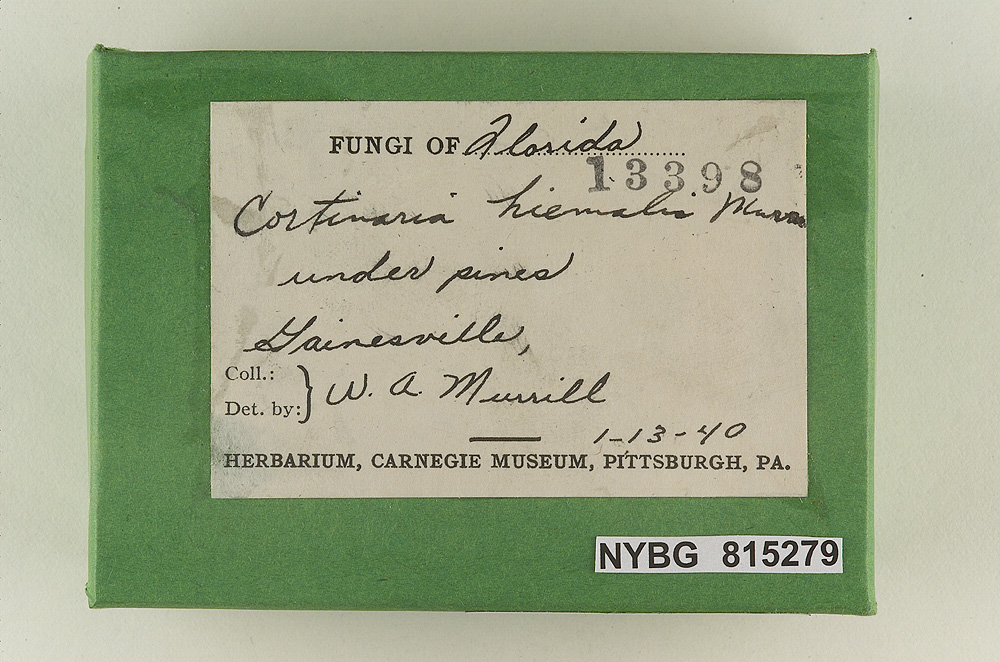 FUNGI OF Florida
13398
Cortinaria hiemalis Murr
under pines
Gainesville,
Coll.:
Det. by: } W. A. Murrill
1-13-40
HERBARIUM, CARNEGIE MUSEUM, PITTSBURGH, PA.
NYBG 815279